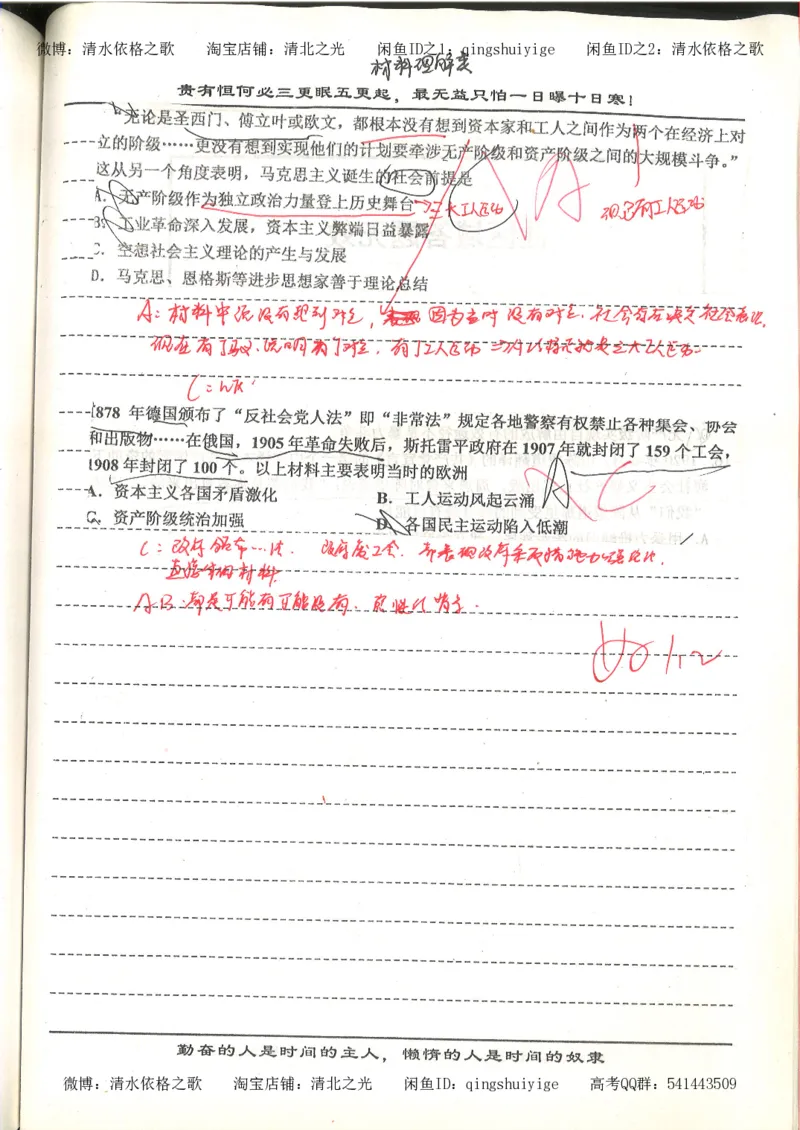 微博：清水依格之歌 淘宝店铺：清北之光 闲鱼ID之1：qingshuiyige 闲鱼ID之2：清水依格之歌
材料理解类
贵有恒何必三更眠五更起，最无益只怕一日曝十日寒！
“无论是圣西门、傅立叶或欧文，都根本没有想到资本家和工人之间作为两个在经济上对
立的阶级……更没有想到实现他们的计划要牵涉无产阶级和资产阶级之间的大规模斗争。”
这从另一个角度表明，马克思主义诞生的社会前提是
A. 无产阶级作为独立政治力量登上历史舞台→三大工人运动
B. 工业革命深入发展，资本主义弊端日益暴露
C. 空想社会主义理论的产生与发展
D. 马克思、恩格斯等进步思想家善于理论总结
A：材料中说没有想到对立，因为当时没有对立
现在有了
1878 年德国颁布了“反社会党人法”即“非常法”规定各地警察有权禁止各种集会、协会
和出版物……在俄国，1905 年革命失败后，斯托雷平政府在 1907 年就封闭了 159 个工会，
1908 年封闭了 100 个。以上材料主要表明当时的欧洲
A. 资本主义各国矛盾激化 B. 工人运动风起云涌
C. 资产阶级统治加强 D. 各国民主运动陷入低潮
C：政府颁布…法
A B：都是可能有可能没有
勤奋的人是时间的主人，懒惰的人是时间的奴隶
微博：清水依格之歌 淘宝店铺：清北之光 闲鱼ID：qingshuiyige 高考QQ群：541443509